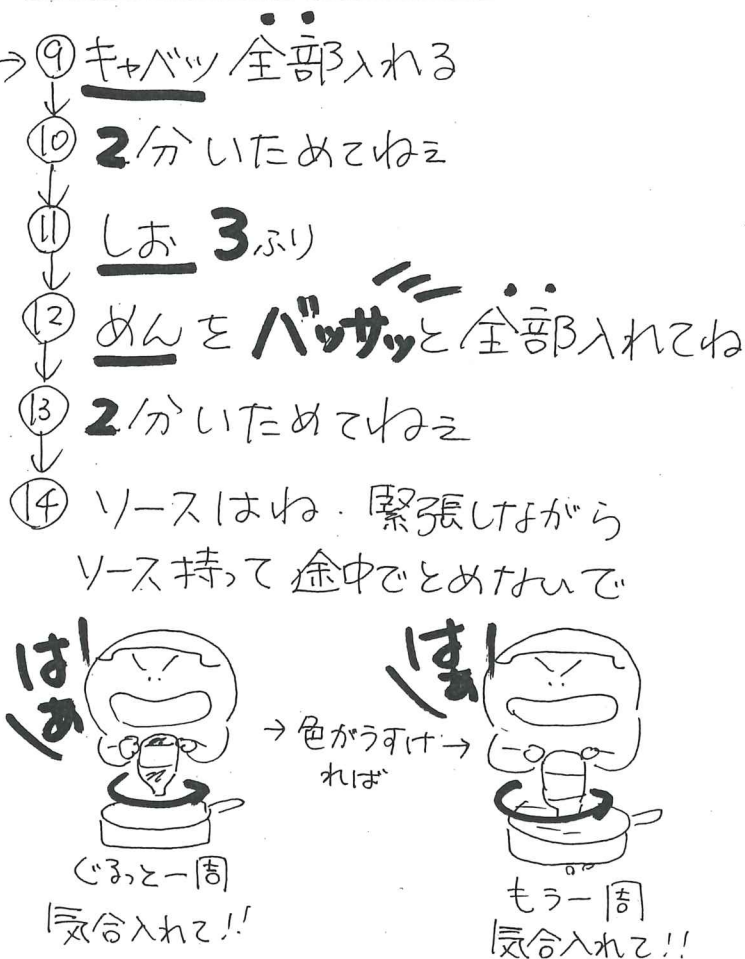 →⑨ キャベツ 全部入れる
⑩ 2分いためてねぇ
⑪ しお 3ふり
⑫ めんを バッサッと 全部入れてね
⑬ 2分いためてねぇ
⑭ ソースはね. 緊張しながら
ソース持って 途中でとめないで
はぁ
→色がうすけ→
れば
はぁ
ぐるっと一周
気合入れて!!
もう一周
気合入れて!!